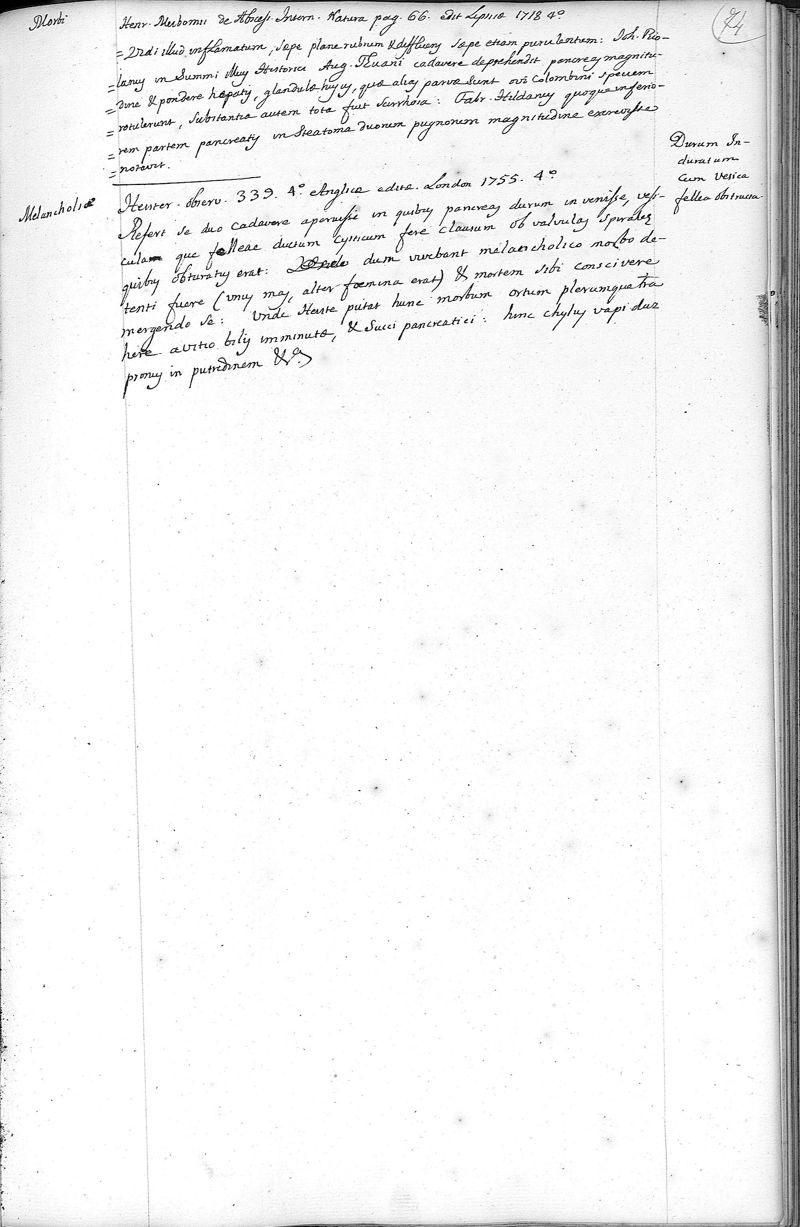 Morbi
74
Henr. Meibomii de Abcess. Intern. Natura pag. 66. edit Lipsiæ 1718 4o
= Vidi illud inflamatum, sæpe plane rubrum & diffluens sæpe etiam purulentum: Joh. Rio-
= lanus in Summi illius Historici Aug. Thuani cadavere deprehendit pancreas magnitu-
= dine & pondere hepatis, glandulæ hujus, quæ alias parvæ sunt ovi Colombini speciem
= rotulerunt, substantia autem tota fuit scirrhosa: Fabr. Hildanus quoque inferio-
= rem partem pancreatis in Steatoma duorum pugnorum magnitudine excrevisse
= notavit.
Melancholiæ
Heister. observ. 339. 4o Anglicæ editæ. London 1755. 4o
Refert se duo cadavera aperuisse in quibus pancreas durum in venisse, vesi-
culam que felleae ductum cysticum fere clausum ob valvulas spirales
quibus obturatus erat: dum vivebant melancholico morbo de-
tenti fuere (unus mas, alter fœmina erat) & mortem sibi conscivere
mergendo se: Unde Heiste putat hunc morbum ortum plerumque tra
here a vitio bilis imminutæ, & Succi pancreatici: hinc chylus vapidus
pronus in putredinem &c.)
Durum In-
duratum
Cum Vesica
fellea obstructa